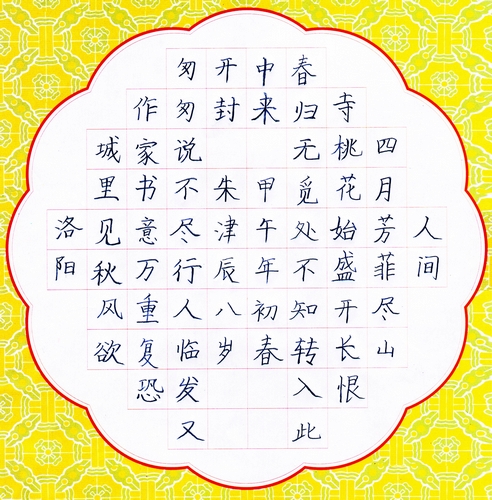 人间
四月芳菲尽山
寺桃花始盛开长恨
春归无觅处不知转入此
中来
甲午年初春
开封
朱津辰八岁
匆匆说不尽行人临发又
作家书意万重复恐
城里见秋风欲
洛阳